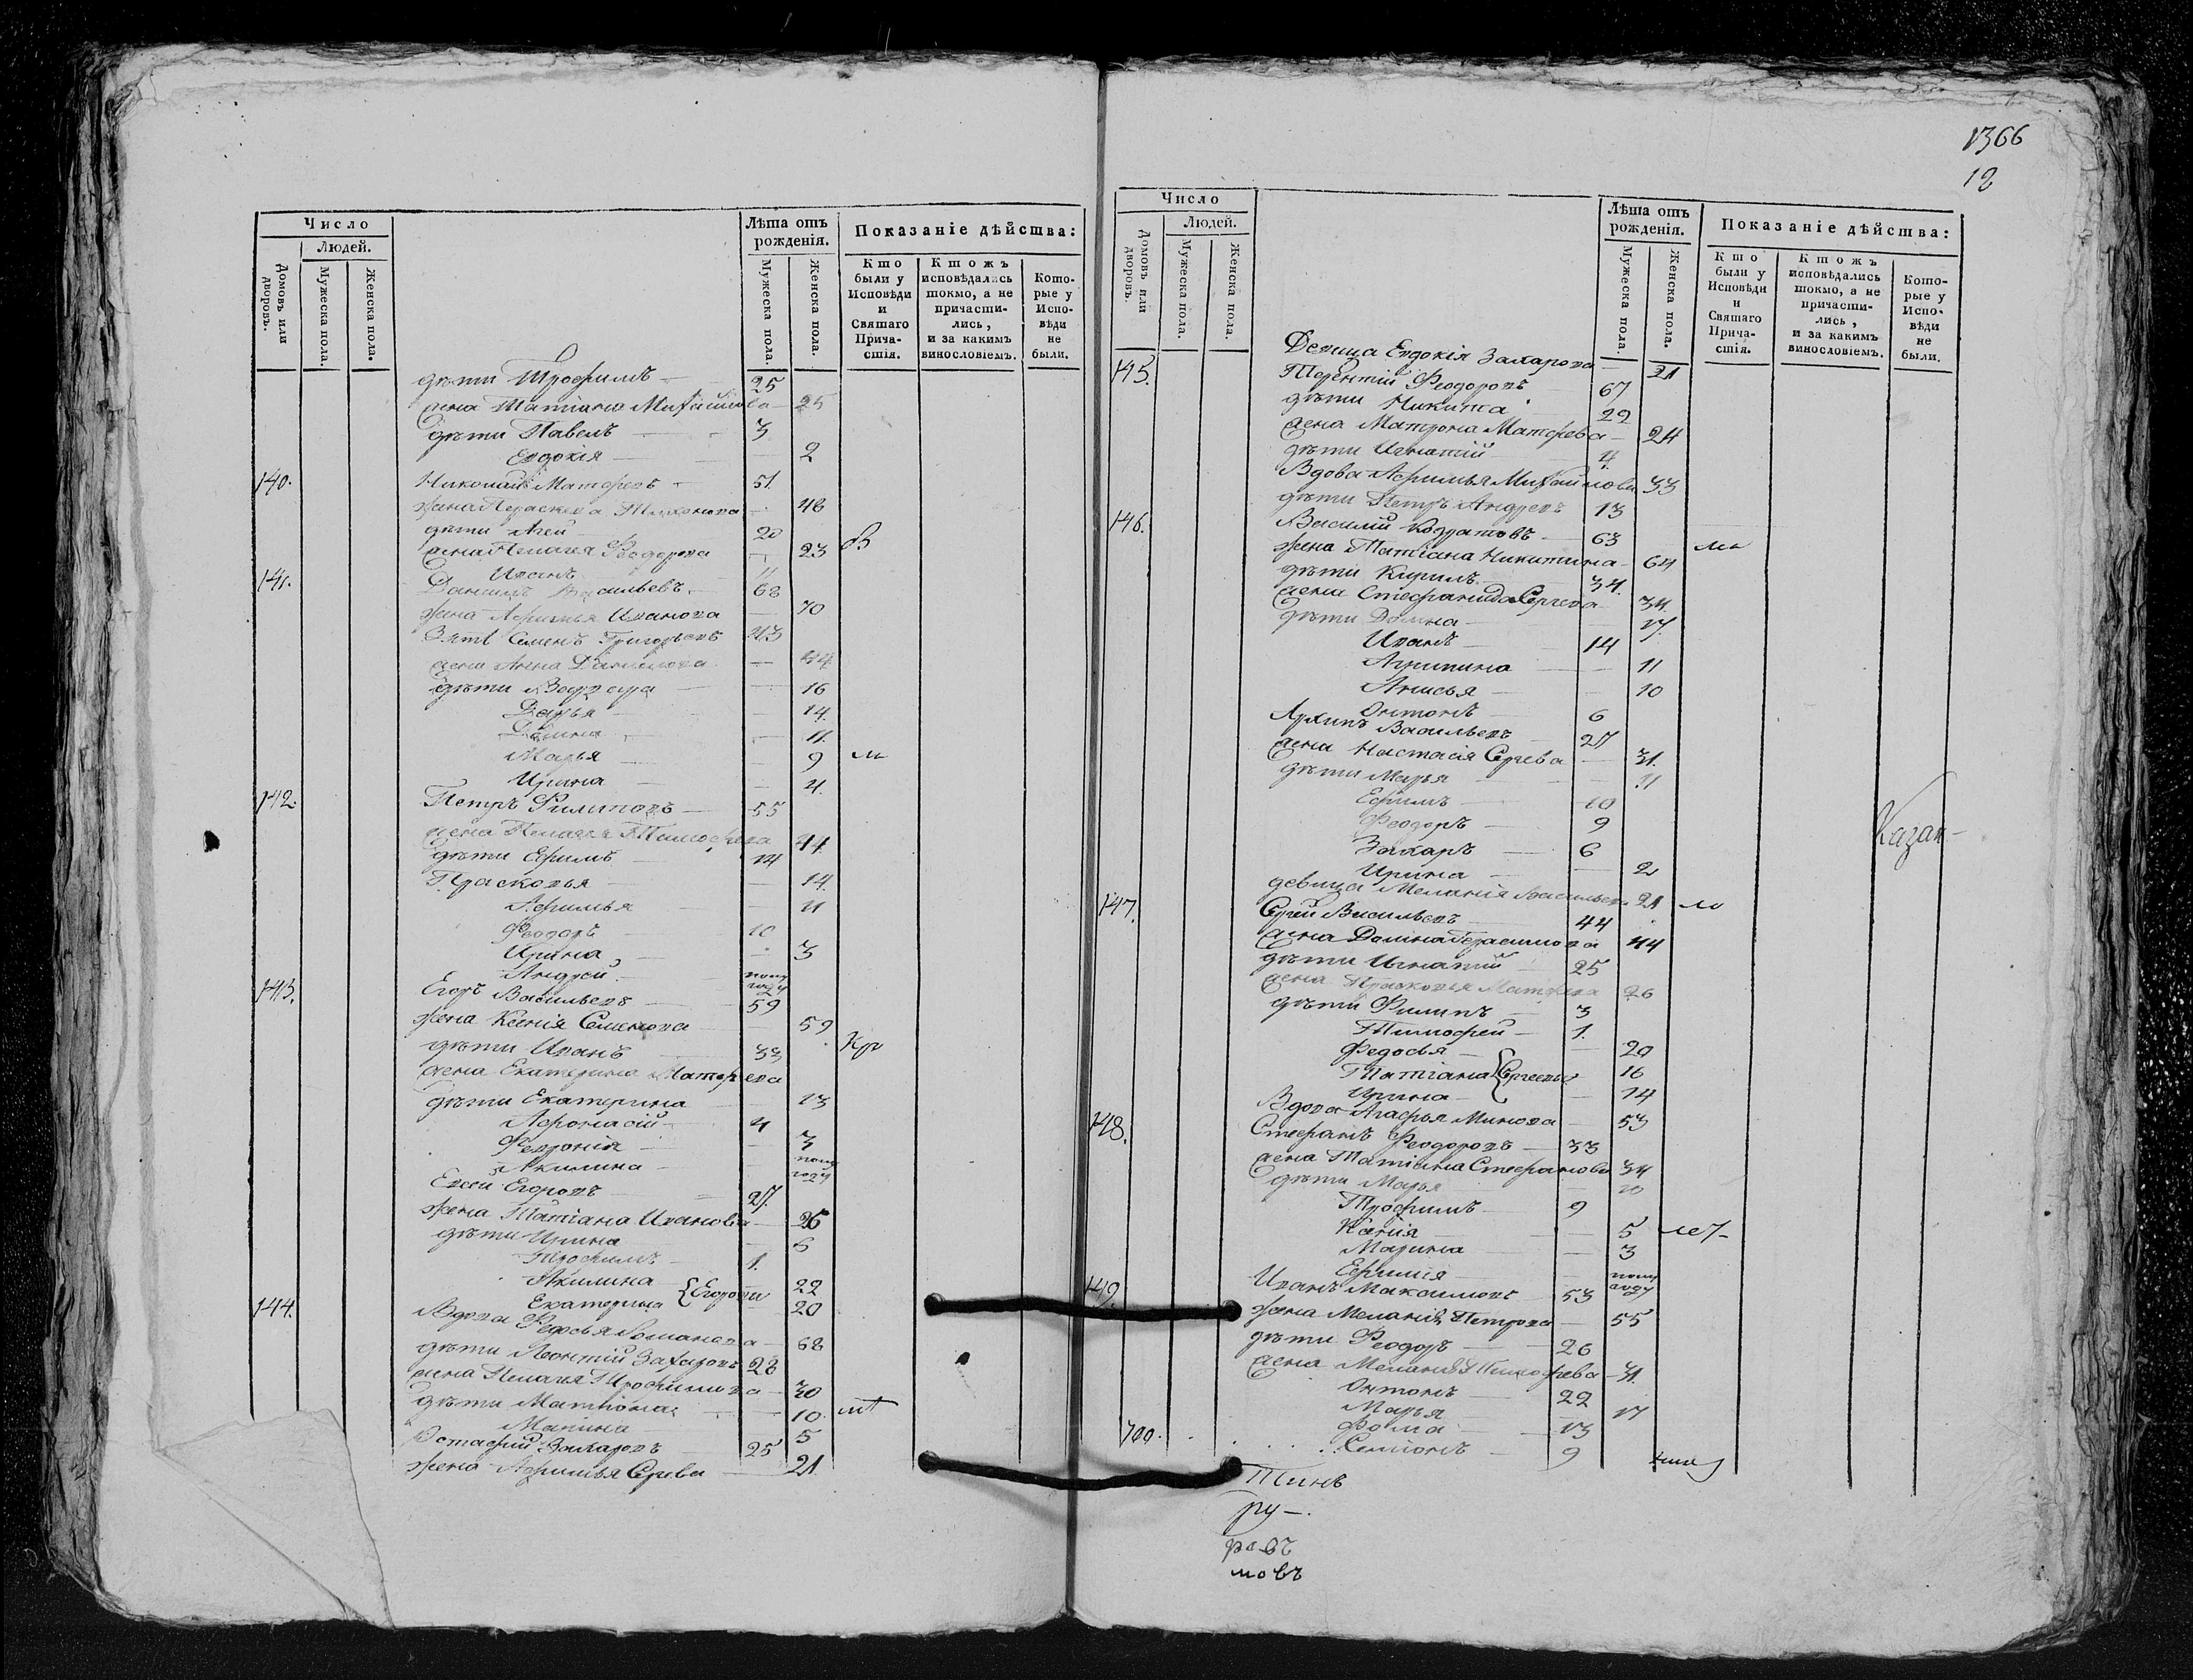 Число
Людей.
Домовъ или дворовъ.
Мужеска пола.
Женска пола.
Лѣта отъ рожденія.
Мужеска пола.
Женска пола.
Показаніе дѣйства:
Кто были у Исповѣди и Святаго Прича-стія.
Ктожъ исповѣдались токмо, а не причасти-лись, и за какимъ винословіемъ.
Кото-рые у Испо-вѣди не были.
дѣти Трофимъ 25
жена Татіана Михайлова 25
дѣти Павелъ 3
Евдокія 2
140. Николай Матфеевъ 51
жена Параскева Тихонова 48
дѣти Агей 20
жена Пелагея Феодорова 23
Иванъ 11
141. Данилъ Васильевъ 68
жена Афимья Иванова 70
Зять Семенъ Григорьевъ 43
жена Анна Данилова 44
дѣти Варвара 16
Дарья 14
Домна 11
Марья 9
Ирина 4
142. Петръ Филиповъ 55
жена Пелагея Тимофеева 44
дѣти Ефимъ 14
Прасковья 14
Афимья 11
Феодоръ 10
Ирина 3
Андрей полу году
143. Егоръ Васильевъ 59
жена Ксенія Семенова 59
дѣти Иванъ 33
жена Екатерина Матфеева
дѣти Екатерина 13
Афонасій 4
Февронія 3
Акилина полу году
Евсей Егоровъ 27
жена Татіана Иванова 26
дѣти Ирина 6
Трофимъ 1
Акилина 22
Екатерина Егоровы 20
144. Вдова Федосья Романова 68
дѣти Леонтій Захаровъ 28
жена Пелагея Трофимова 30
дѣти Матрона 10
Марина 5
Остафий Захаровъ 25
жена Афимья Сергева 21
1366
12
Число
Людей.
Домовъ или дворовъ.
Мужеска пола.
Женска пола.
Лѣта отъ рожденія.
Мужеска пола.
Женска пола.
Показаніе дѣйства:
Кто были у Исповѣди и Святаго Прича-стія.
Ктожъ исповѣдались токмо, а не причасти-лись, и за какимъ винословіемъ.
Кото-рые у Испо-вѣди не были.
Девица Евдокія Захарова 21
145. Терентій Феодоровъ 67
дѣти Никита 22
жена Матрона Матфева 24
дѣти Игнатий 4
Вдова Афимья Михайлова 33
дѣти Петръ Андреевъ 13
146. Василий Кодратовъ 63
жена Татіана Никитина 64
дѣти Кирилъ 34
жена Стефанида Сергева 34
дѣти Домна 17
Иванъ 14
Агрипина 11
Анисья 10
Онтонъ 6
Архипъ Васильевъ 27
жена Настасія Сергева 31
дѣти Марья 11
Ефимъ 10
Феодоръ 9
Захаръ 6
Ирина 2
девица Меланія Васильева 21
Казан-
147. Сергей Васильевъ 44
жена Домна Герасимова 44
дѣти Игнатий 25
жена Прасковья Матфеева 26
дѣти Филипъ 3
Тимофей 1
Федосья 20
Татіана Сергеевы 16
Ирина 14
Вдова Агафья Минова 53
148. Стефанъ Феодоровъ 33
жена Татіана Стефанова 34
дѣти Марья 10
Трофимъ 9
Ксенія 5
Марина 3
Ефимія полу году
149. Иванъ Максимовъ 53
жена Меланія Петрова 55
дѣти Феодоръ 26
жена Меланія Тимофева 31
Онтонъ 22
Марья 17
Фома 13
700. Семионъ 9